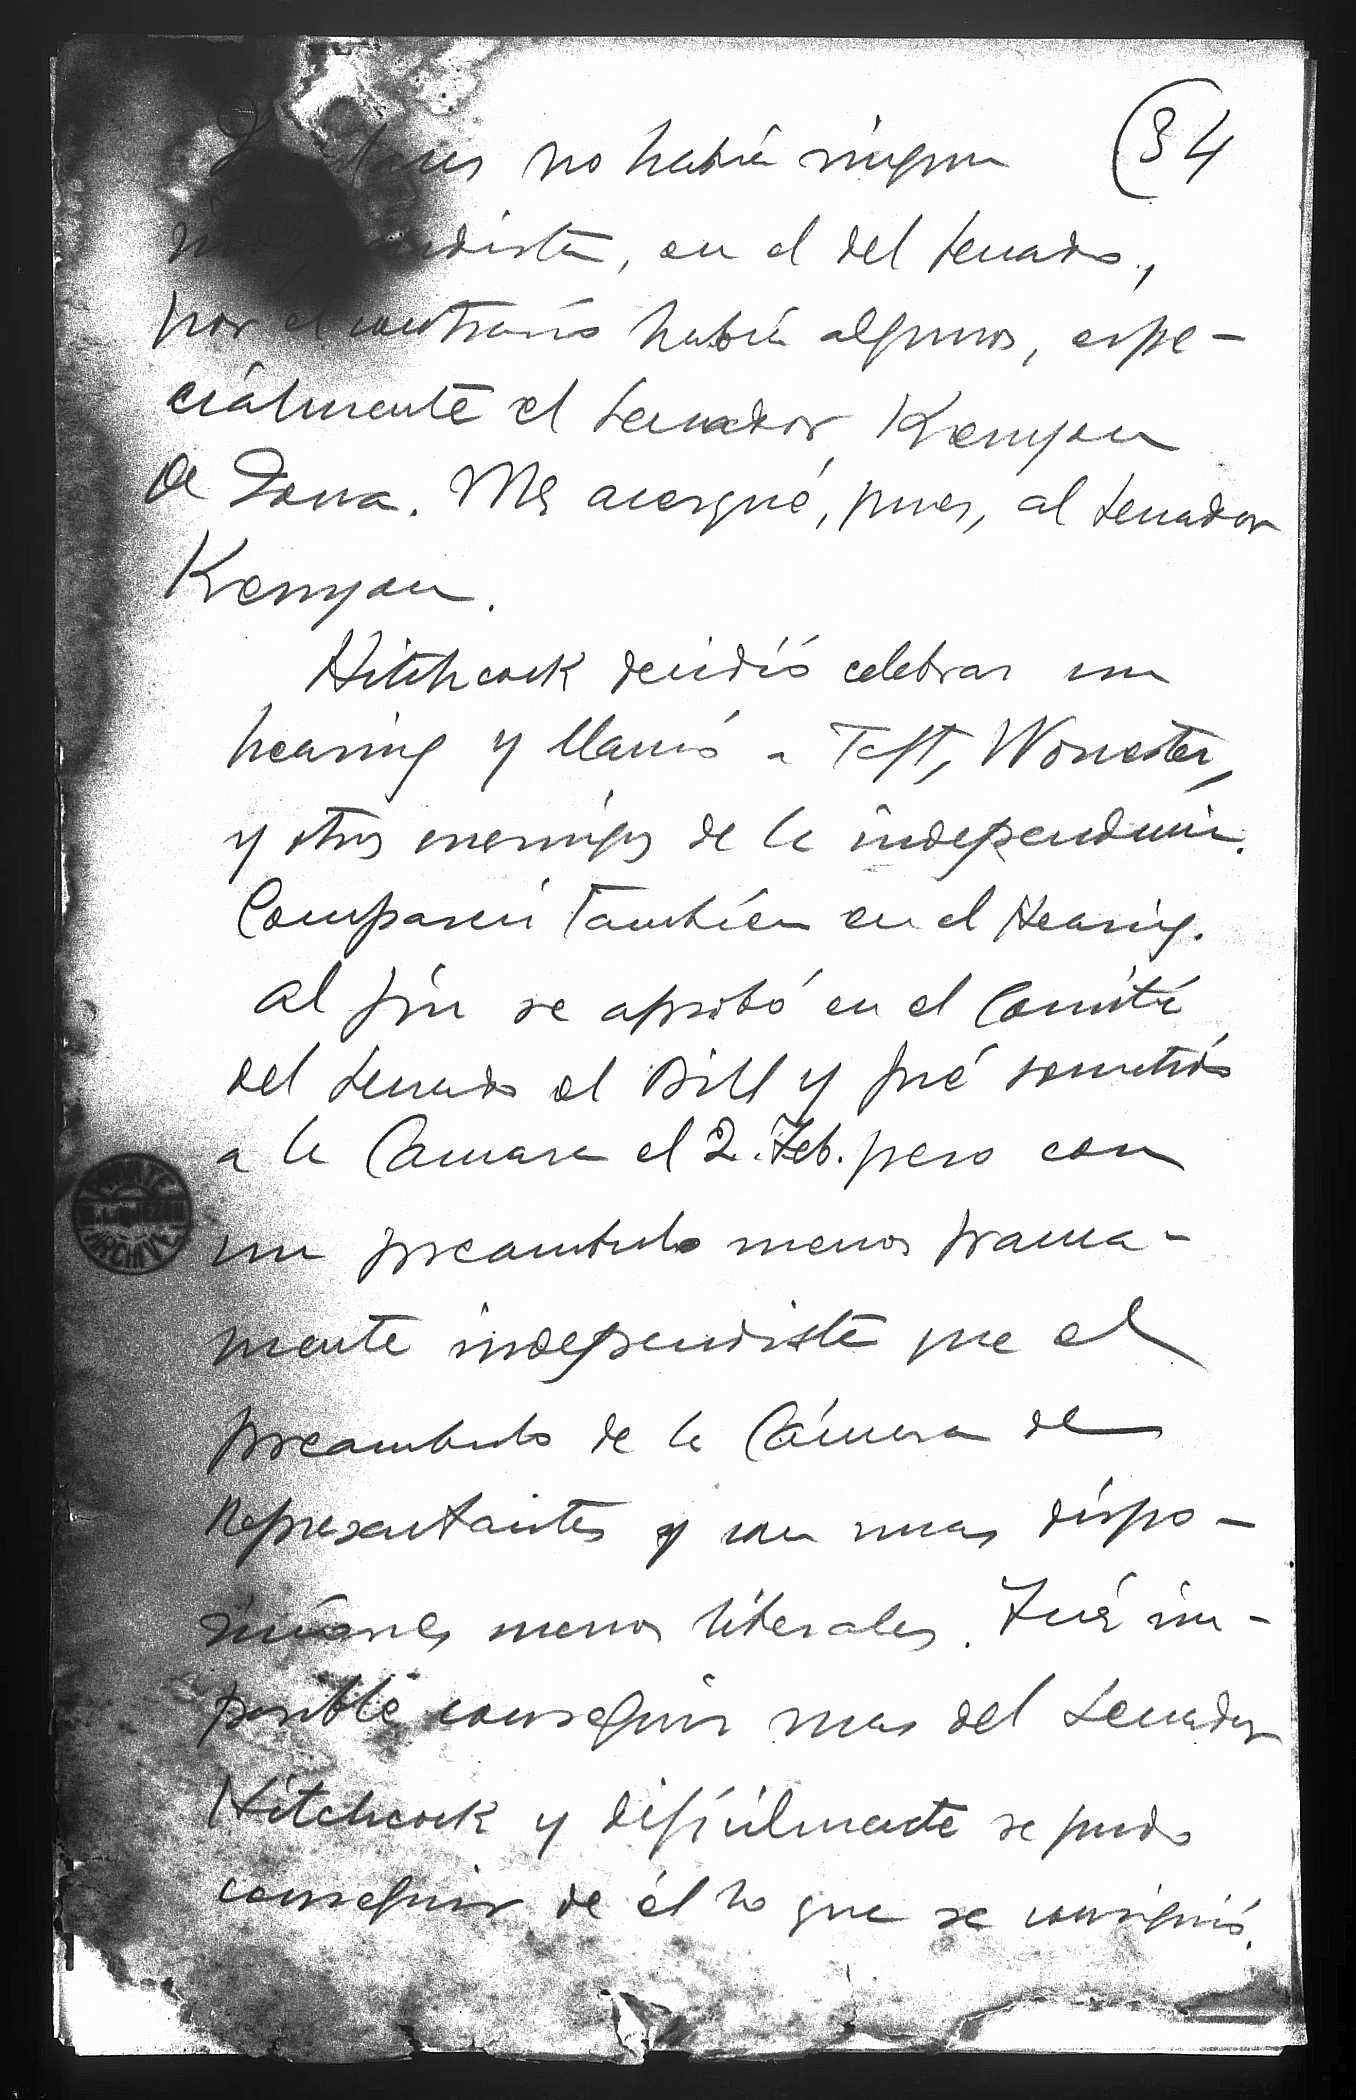 (34
no habia ningun
, en el del Senado,
por el contrario habia algunos, espe-
cialmente el Senador Kenyon
de Iowa. Me acerqué, pues, al Senador
Kenyon.
Hitchcock decidió celebrar un
hearing y llamó a Taft, Worcester,
y otros enemigos de la independencia.
Comparecí también en el Hearing.
Al fin se aprobó en el Comité
del Senado el Bill y fué sometido
a la Camara el 2. Feb. pero con
un preambulo menos franca-
mente independista que el
preambulo de la Cámara de
Representantes y con unas dispo-
siciones menos liberales. Fué im-
posible conseguir mas del Senador
Hitchcock y dificilmente se pudo
conseguir de él lo que se consiguió.
PRIVATE
M. L. QUEZON
ARCHIVE